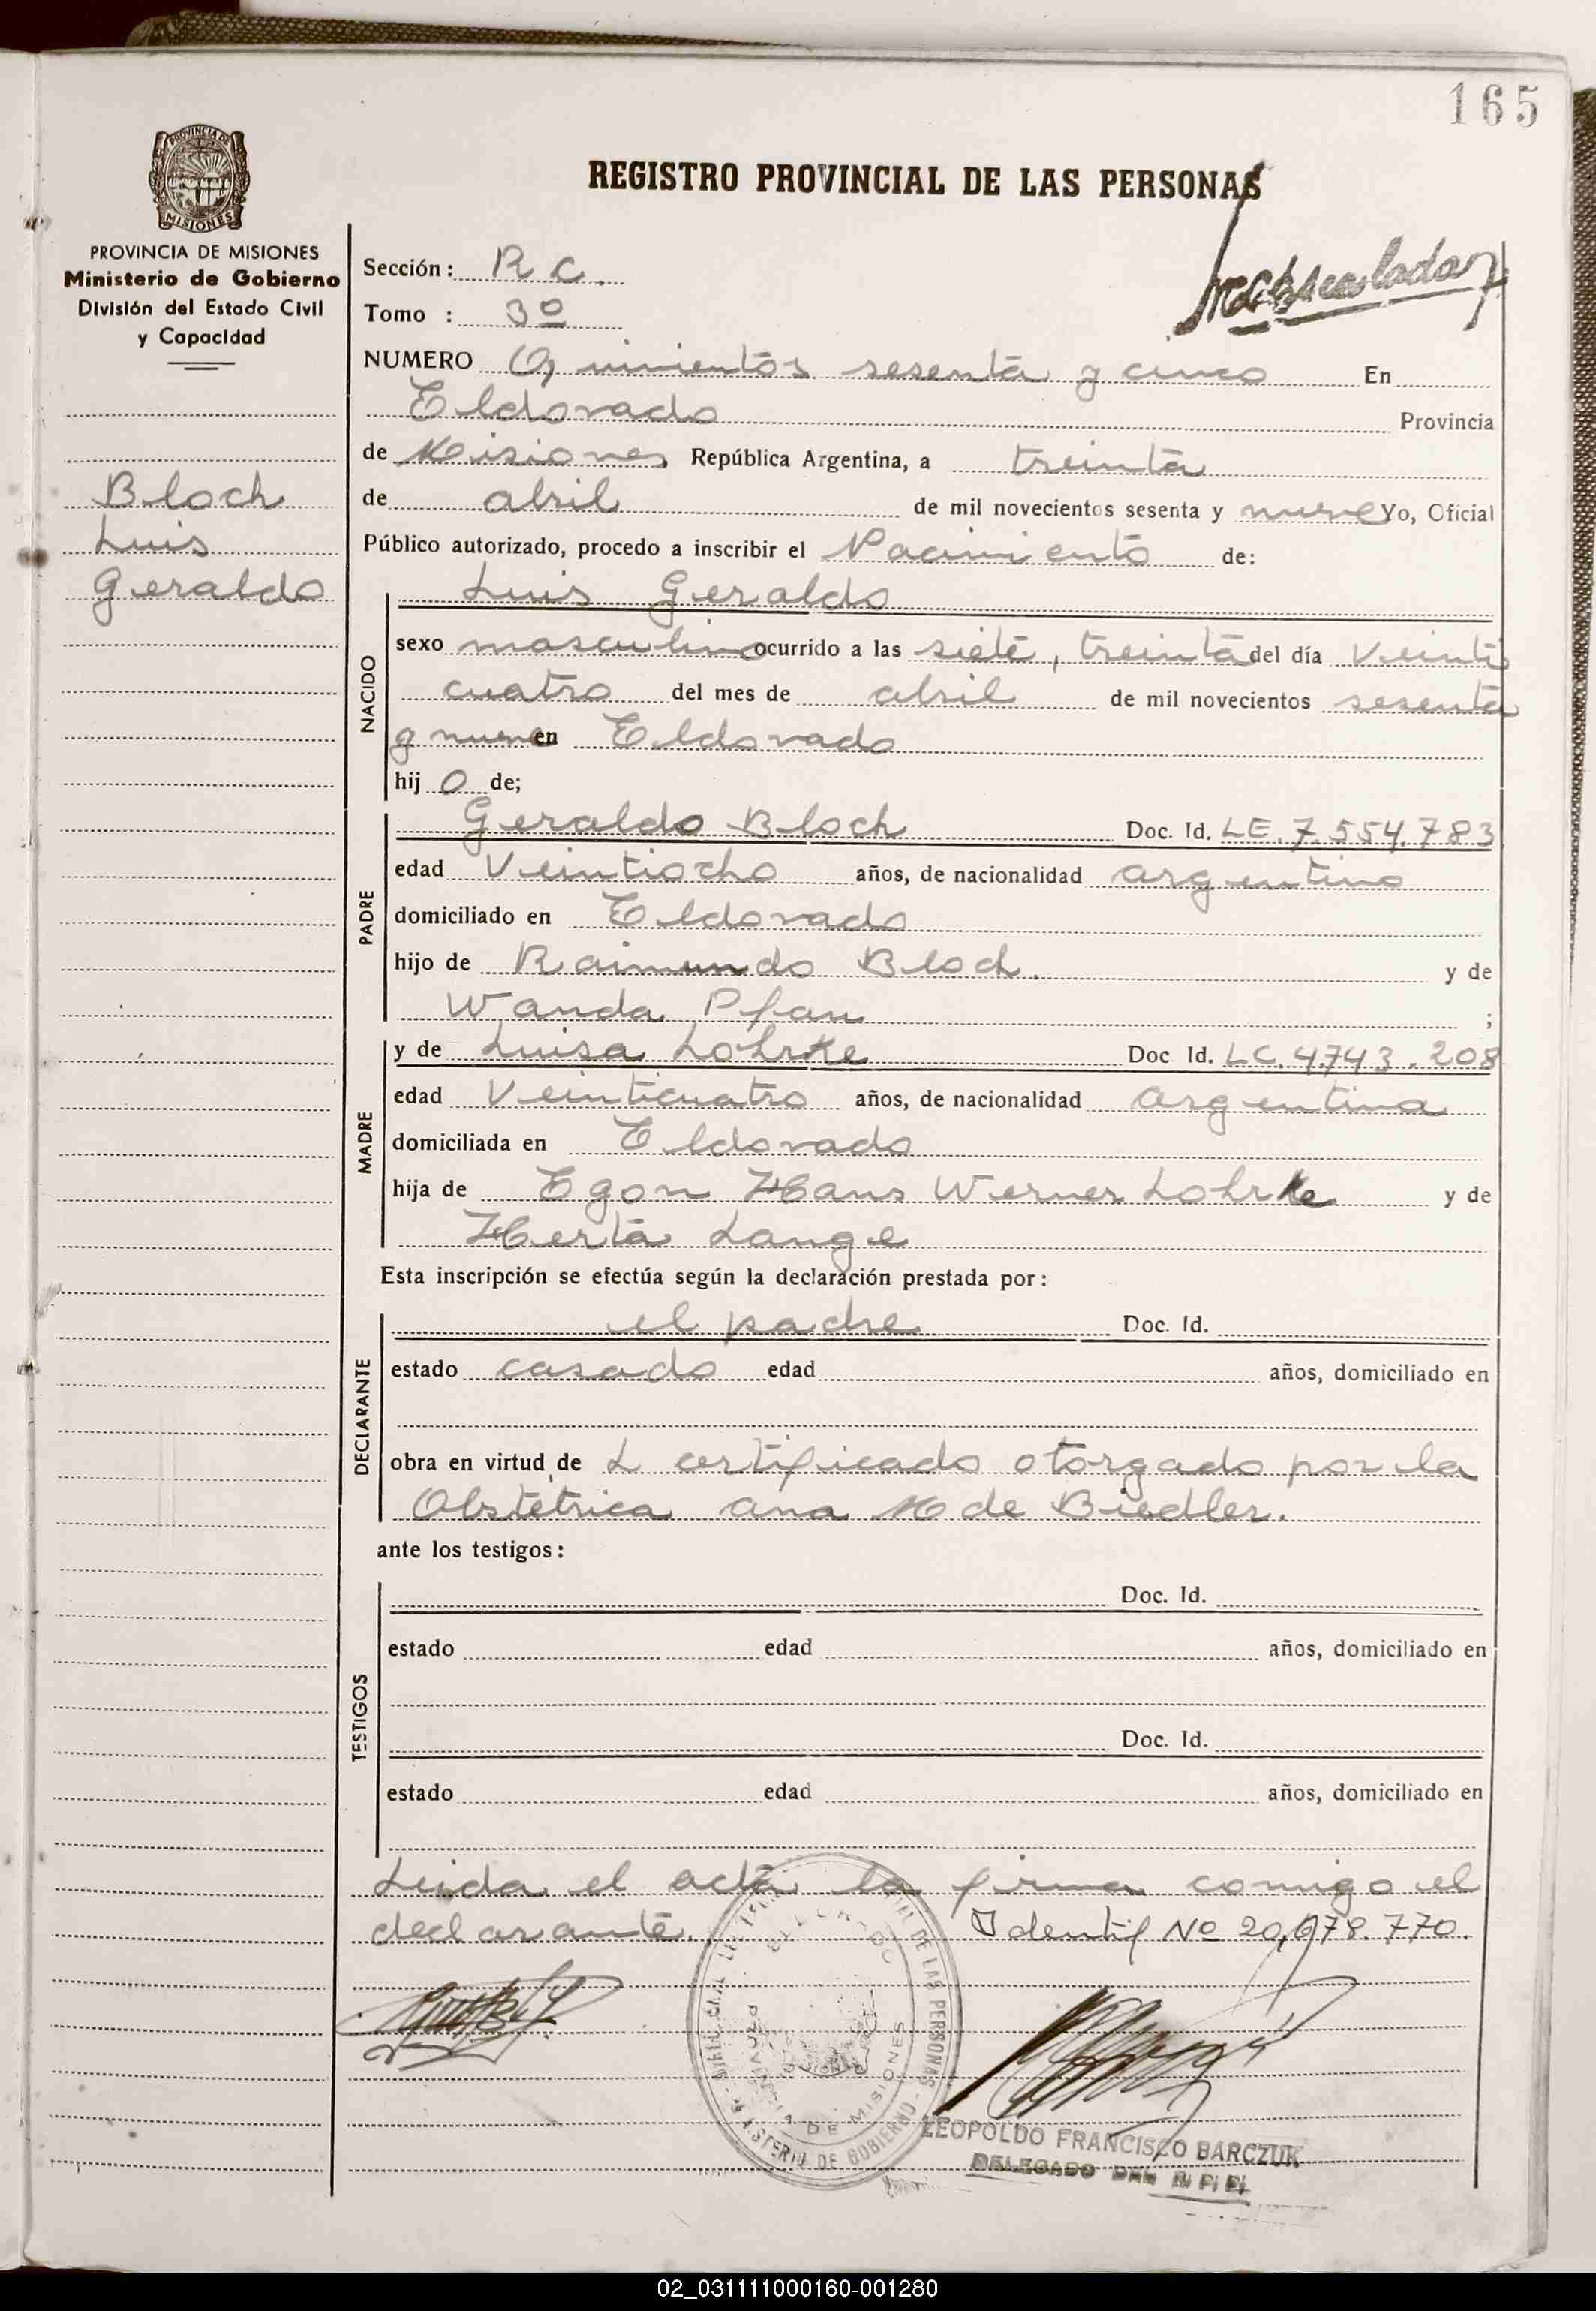 165
REGISTRO PROVINCIAL DE LAS PERSONAS
PROVINCIA DE MISIONES
PROVINCIA DE MISIONES
Ministerio de Gobierno
División del Estado Civil
y Capacidad
Bloch
Luis
Geraldo
Sección: R C.
Tomo : 3º
NUMERO Quinientos sesenta y cinco En
Eldorado Provincia
de Misiones República Argentina, a treinta
de abril de mil novecientos sesenta y nueve Yo, Oficial
Público autorizado, procedo a inscribir el Nacimiento de:
NACIDO
Luis Geraldo
sexo masculino ocurrido a las siete, treinta del día Veinti
cuatro del mes de abril de mil novecientos sesenta
y nueve en Eldorado
hij o de;
PADRE
Geraldo Bloch Doc. Id. LE. 7.554.783
edad Veintiocho años, de nacionalidad argentino
domiciliado en Eldorado
hijo de Raimundo Bloch. y de
Wanda Pfau ;
MADRE
y de Luisa Lohrke Doc Id. LC. 4743.208
edad Veinticuatro años, de nacionalidad argentina
domiciliada en Eldorado
hija de Egon Hans Werner Lohrke y de
Herta Lange
Esta inscripción se efectúa según la declaración prestada por:
DECLARANTE
el padre Doc. Id.
estado casado edad años, domiciliado en
obra en virtud de L certificado otorgado por la
Obstetrica Ana M de Biedler.
ante los testigos:
TESTIGOS
Doc. Id.
estado edad años, domiciliado en
Doc. Id.
estado edad años, domiciliado en
Leida el acta la firma comigo el
declarante. Identif Nº 20,678.770.
ELDORADO
PROVINCIA DE MISIONES
DE LAS PERSONAS - MINISTERIO DE GOBIERNO
LEOPOLDO FRANCISCO BARCZUK
DELEGADO DEL R. P. P.
02_031111000160-001280